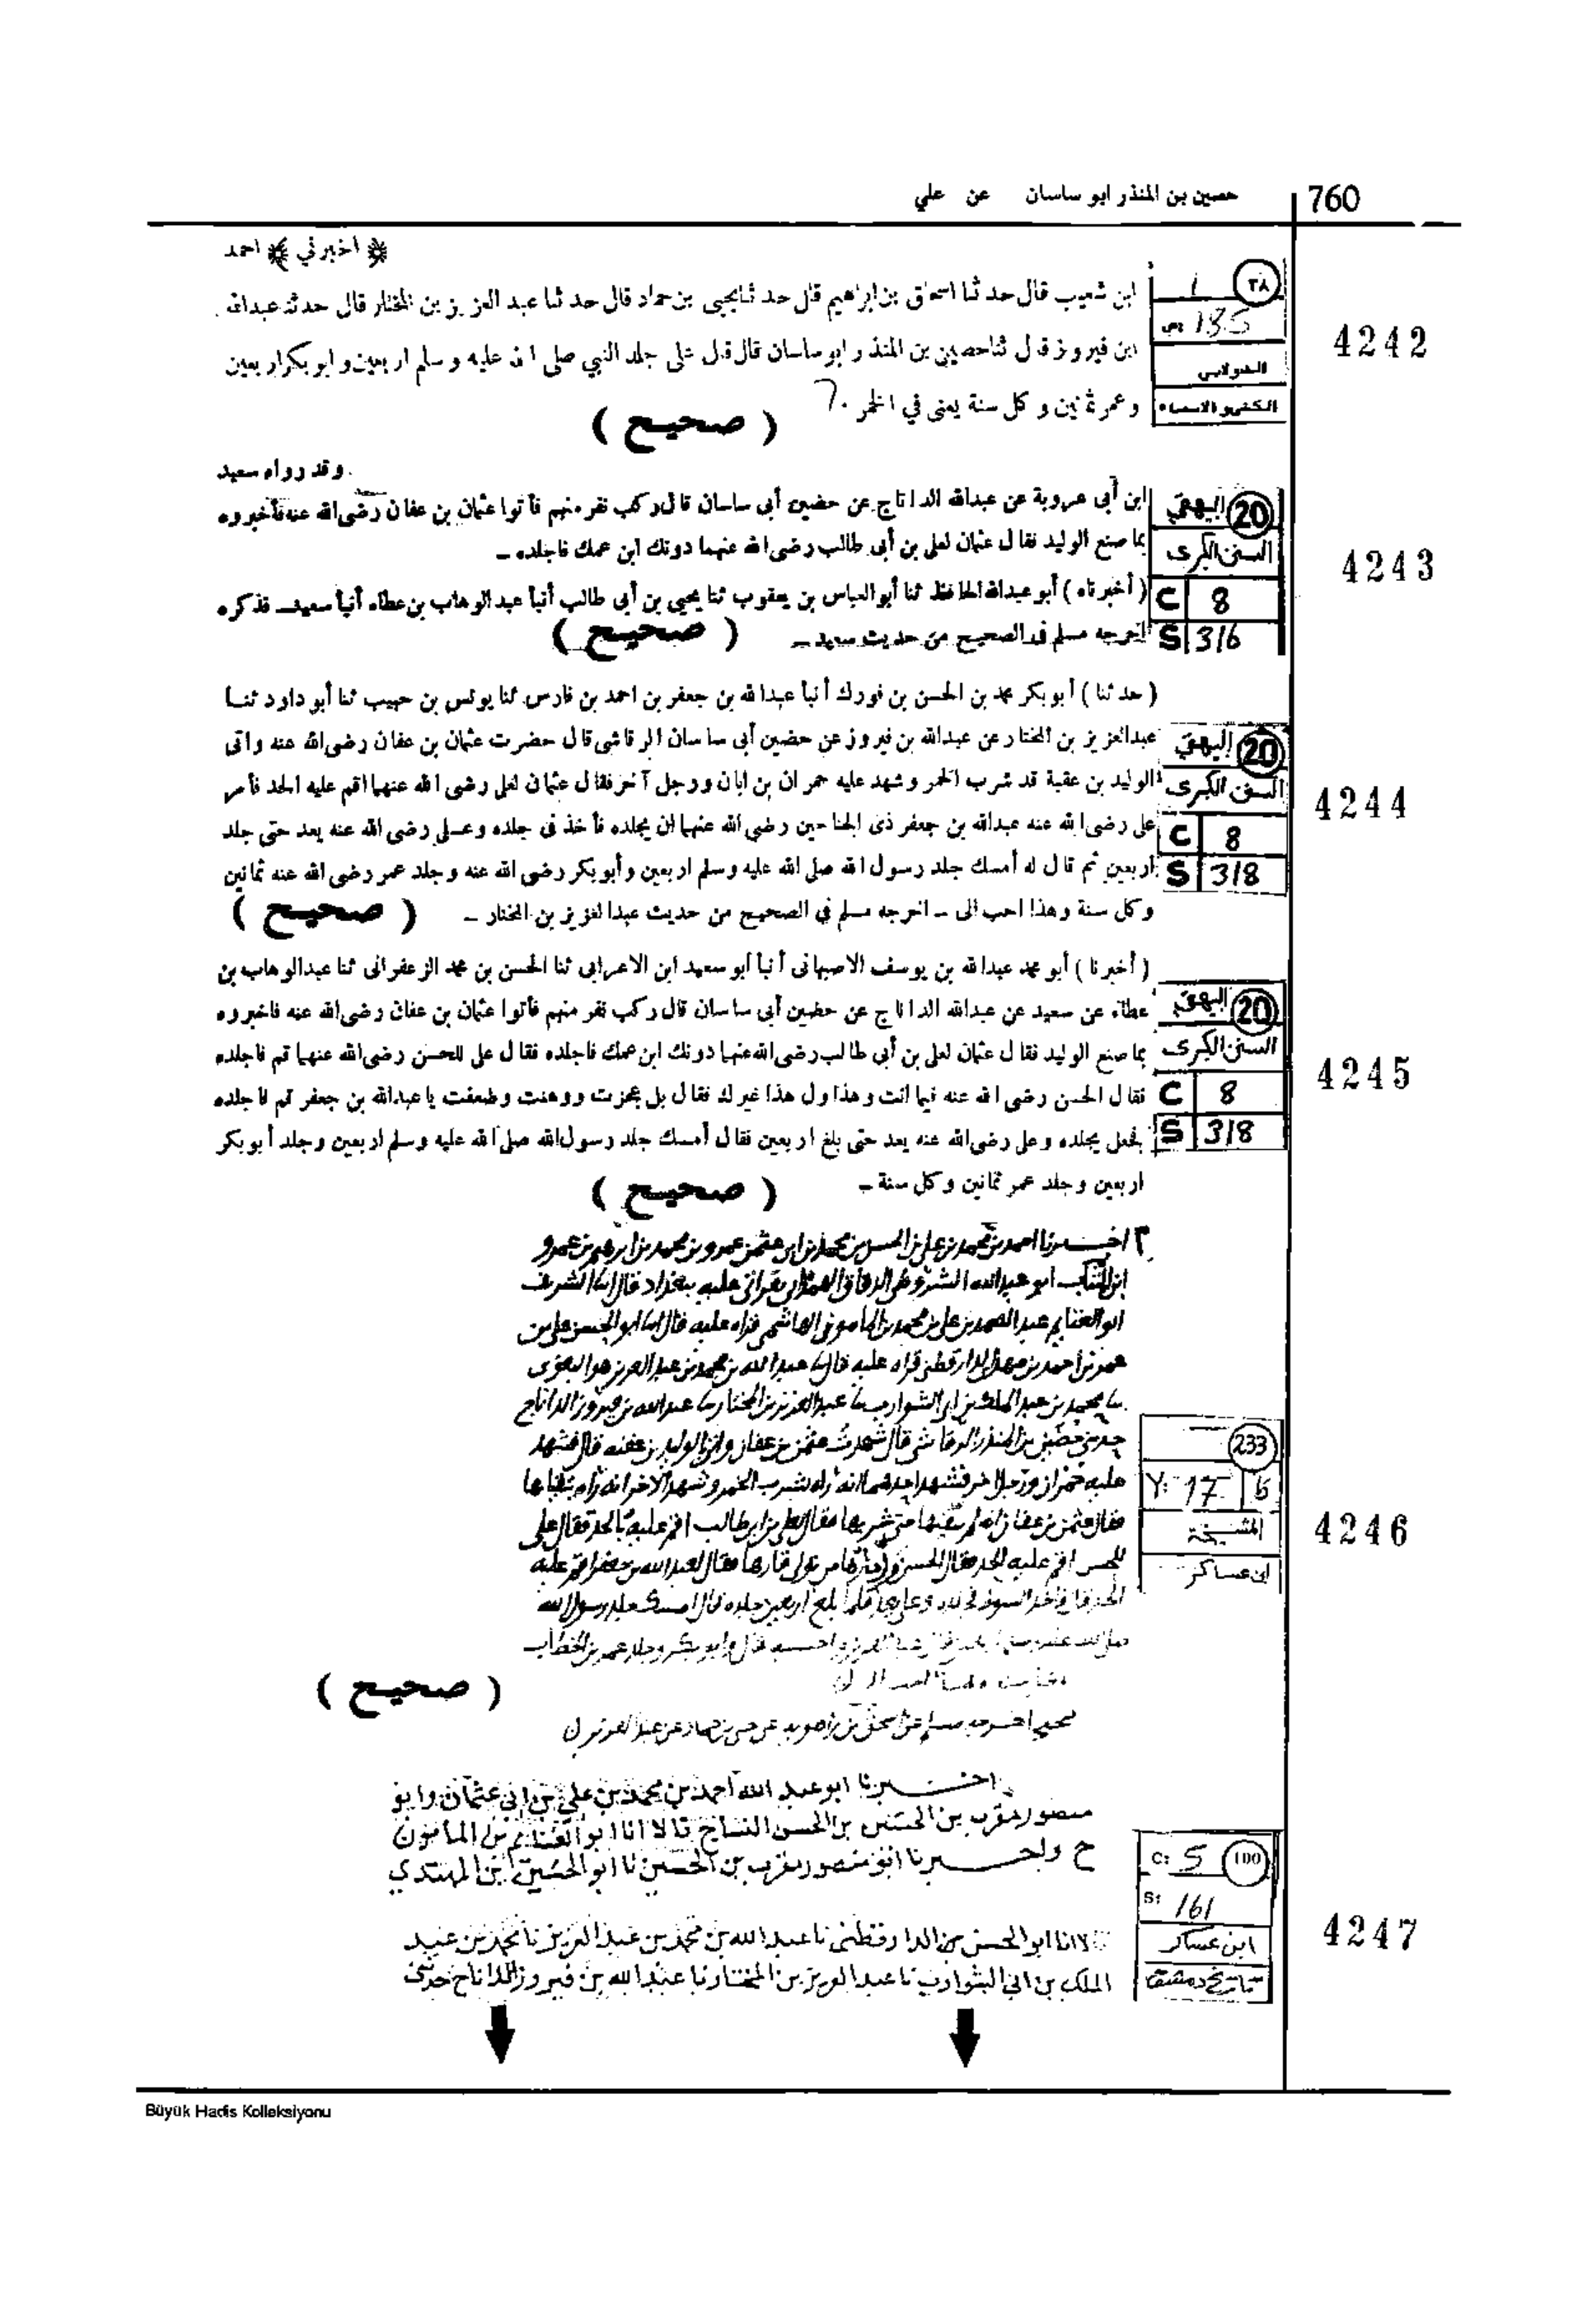 760
حصين بن المنذر ابو ساسان عن علي
﴿ اخبرني ﴾ احمد
ابن شعيب قال حد ثنا اسحاق بن ابراهيم قال حد ثنا يحيى بن حماد قال حد ثنا عبد العزيز بن المختار قال حدثنا عبدالله
ابن فيروز قال ثنا حصين بن المنذر ابو ساسان قال قال علي جلد النبي صلى الله عليه وسلم اربعين و ابو بكر اربعين
و عمر ثمانين و كل سنة يعنى في الخمر
( صحيح )
٣٨
1
ص: 135
الدولابي
الكنى والاسماء
4242
وقد رواه سعيد
ابن أبى عروبة عن عبدالله الداناج عن حضين أبى ساسان قال ركب نفر منهم فأتوا عثمان بن عفان رضى الله عنه فأخبروه
بما صنع الوليد فقال عثمان لعلى بن أبى طالب رضى الله عنهما دونك ابن عمك فاجلده ـ
( أخبرناه ) أبو عبدالله الحافظ ثنا أبو العباس بن يعقوب ثنا يحيى بن أبى طالب أنبأ عبدالوهاب بن عطاء أنبأ سعيد ـ فذكره
اخرجه مسلم فى الصحيح من حديث سعيد ـ ( صحيح )
20 البيهقي
السنن الكبرى
C 8
S 316
4243
( حدثنا ) أبو بكر محمد بن الحسن بن فورك أنبأ عبدالله بن جعفر بن احمد بن فارس ثنا يونس بن حبيب ثنا أبو داود ثنا
عبدالعزيز بن المختار عن عبدالله بن فيروز عن حضين أبى ساسان الرقاشى قال حضرت عثمان بن عفان رضى الله عنه واتى
الوليد بن عقبة قد شرب الخمر وشهد عليه حمران بن ابان ورجل آخر فقال عثمان لعلى رضى الله عنهما اقم عليه الحد فأمر
على رضى الله عنه عبدالله بن جعفر ذى الجناحين رضى الله عنهما ان يجلده فأخذ فى جلده وعلى رضى الله عنه يعد حتى جلد
اربعين ثم قال له أمسك جلد رسول الله صلى الله عليه وسلم اربعين وأبو بكر رضى الله عنه وجلد عمر رضى الله عنه ثمانين
وكل سنة وهذا احب الى ـ اخرجه مسلم فى الصحيح من حديث عبدالعزيز بن المختار ـ ( صحيح )
20 البيهقي
السنن الكبرى
C 8
S 318
4244
( أخبرنا ) أبو محمد عبدالله بن يوسف الاصبهانى أنبأ أبو سعيد ابن الاعرابى ثنا الحسن بن محمد الزعفرانى ثنا عبدالوهاب بن
عطاء عن سعيد عن عبدالله الداناج عن حضين أبى ساسان قال ركب نفر منهم فأتوا عثمان بن عفان رضى الله عنه فاخبروه
بما صنع الوليد فقال عثمان لعلى بن أبى طالب رضى الله عنهما دونك ابن عمك فاجلده فقال على للحسن رضى الله عنهما قم فاجلده
فقال الحسن رضى الله عنه فيما انت وهذا ول هذا غيرك فقال بل عجزت ووهنت وضعفت يا عبدالله بن جعفر قم فاجلده
فجعل يجلده وعلى رضى الله عنه يعد حتى بلغ اربعين فقال أمسك جلد رسول الله صلى الله عليه وسلم اربعين وجلد أبو بكر
اربعين وجلد عمر ثمانين وكل سنة ـ
( صحيح )
20 البيهقي
السنن الكبرى
C 8
S 318
4245
اخبرنا احمد بن محمد بن علي بن الحسن بن محمد بن ابي عثمن عمرو بن محمد بن ابرهيم بن عمرو
ابو عبدالله
ابو الغنايم عبد الصمد بن علي بن محمد بن المامون الهاشمي قراه عليه قال انا ابو الحسن علي بن
عمر بن احمد بن مهدي الدارقطني قراه عليه قال نا عبد الله بن محمد بن عبد العزيز هو البغوى
نا محمد بن عبد الملك بن ابي الشوارب نا عبد العزيز بن المختار نا عبد الله بن فيروز الداناج
حدثني حضين بن المنذر الرقاشي قال شهدت عثمن بن عفان واتي بالوليد بن عقبه قال فشهد
عليه حمران ورجل اخر فشهد احدهما انه راه يشرب الخمر وشهد الاخر انه راه يتقياها
فقال عثمن بن عفان انه لم يتقيها حتى شربها فقال لعلي بن ابي طالب اقم عليه الحد فقال علي
للحسن اقم عليه الحد فقال الحسن ول حارها من تولى قارها فقال لعبد الله بن جعفر اقم عليه
الحد فاخذ السوط فجلده وعلي يعد فلما بلغ اربعين جلده قال امسك جلد رسول الله
قال وابو بكر وجلد عمر بن الخطاب
( صحيح )
233
Y: 17 b
المشيخة
ابن عساكر
4246
اخبرنا ابو عبد الله احمد بن محمد بن علي بن ابي عثمان وابو
منصور مقرب بن الحسين بن الحسن النساج قالا انا ابو الغنايم بن المامون
ح واخبرنا ابو منصور مقرب بن الحسين نا ابو الحسين ابن المهتدي
قالا انا ابو الحسن الدارقطني نا عبد الله بن محمد بن عبد العزيز نا محمد بن عبد
الملك بن ابي الشوارب نا عبد العزيز بن المختار نا عبد الله بن فيروز الداناج حدثني
100
C: 5
S: 161
ابن عساكر
تاريخ دمشق
4247
Büyük Hadis Kolleksiyonu